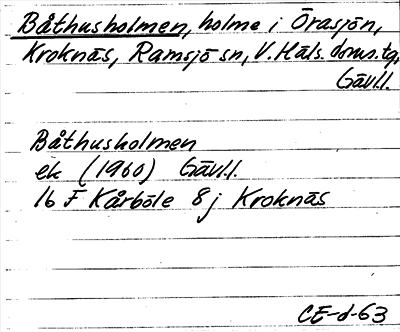 Båthusholmen, holme i Örasjön,
Kroknäs, Ramsjö sn, V. Häls. doms.tg,
Gävl.l.
Båthusholmen
ek (1960) Gävl.l.
16 F Kårböle 8 j Kroknäs
CE-d-63